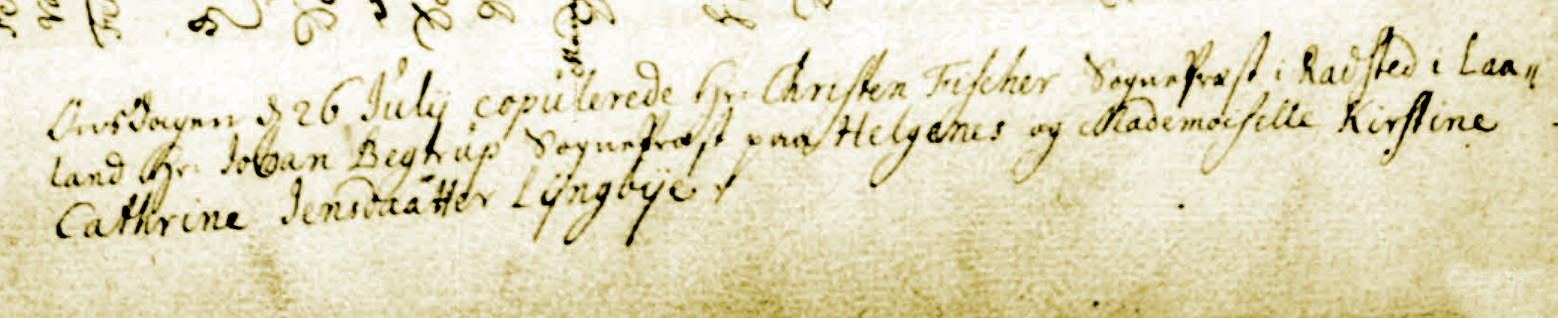 Onsdagen d 26 Julij copulerede Hr. Christen Fischer Sognepræst i Radsted i Laa„
land Hr. Johan Begtrup Sognepræst paa Helgenes og Mademoiselle Kirstine
Cathrine Jensdaatter Lyngbye